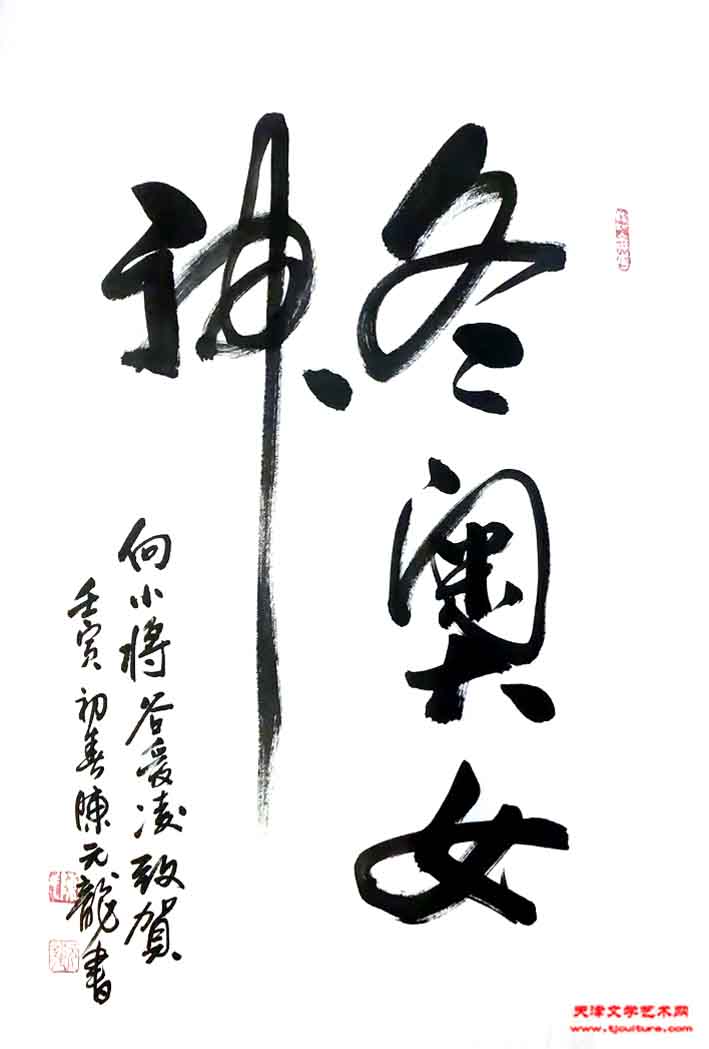 冬奥女
神
向小将谷爱凌致賀
壬寅初春陳元龍書
天津文学艺术网
www.tjculture.com